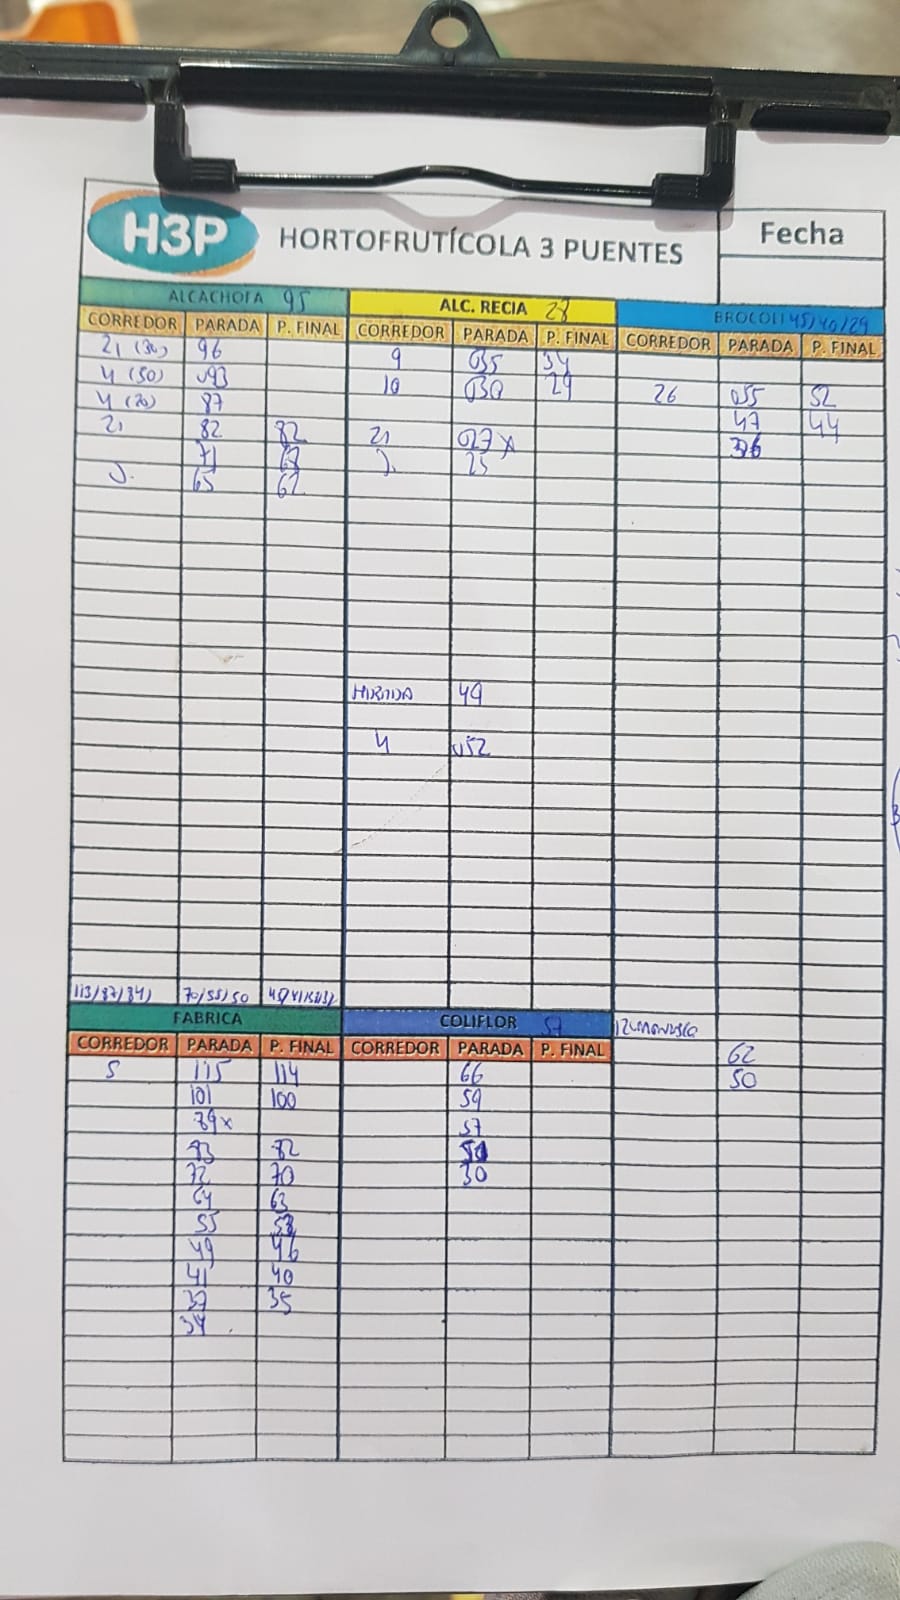 H3P HORTOFRUTÍCOLA 3 PUENTES Fecha
ALCACHOFA 95 ALC. RECIA 28 BROCOLI 45/40/29
CORREDOR PARADA P. FINAL CORREDOR PARADA P. FINAL CORREDOR PARADA P. FINAL
21 (30) 96 9 035 34
4 (50) 093 10 030 29 26 055 52
4 (20) 87 47 44
21 82 82 21 027 x 36
71 J. 25
J. 65 62
49
4 052
113/87/84/ 70/55/50
FABRICA COLIFLOR 57
CORREDOR PARADA P. FINAL CORREDOR PARADA P. FINAL 62
5 115 114 66 50
101 100 59
89 x 57
83 82
72 70 30
64 63
55 53
49 46
41 40
37 35
34